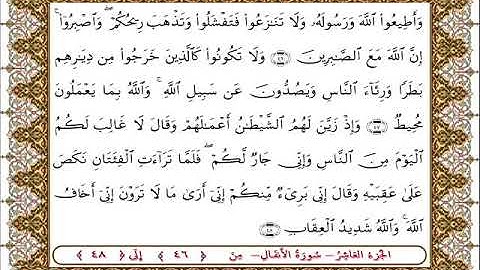 وَأَطِيعُوا۟ ٱللَّهَ وَرَسُولَهُۥ وَلَا تَنَـٰزَعُوا۟ فَتَفْشَلُوا۟ وَتَذْهَبَ رِيحُكُمْ ۖ وَٱصْبِرُوٓا۟ ۚ
إِنَّ ٱللَّهَ مَعَ ٱلصَّـٰبِرِينَ ﴿٤٦﴾ وَلَا تَكُونُوا۟ كَٱلَّذِينَ خَرَجُوا۟ مِن دِيَـٰرِهِم
بَطَرًا وَرِئَآءَ ٱلنَّاسِ وَيَصُدُّونَ عَن سَبِيلِ ٱللَّهِ ۚ وَٱللَّهُ بِمَا يَعْمَلُونَ
مُحِيطٌ ﴿٤٧﴾ وَإِذْ زَيَّنَ لَهُمُ ٱلشَّيْطَـٰنُ أَعْمَـٰلَهُمْ وَقَالَ لَا غَالِبَ لَكُمُ
ٱلْيَوْمَ مِنَ ٱلنَّاسِ وَإِنِّى جَارٌ لَّكُمْ ۖ فَلَمَّا تَرَآءَتِ ٱلْفِئَتَانِ نَكَصَ
عَلَىٰ عَقِبَيْهِ وَقَالَ إِنِّى بَرِىٓءٌ مِّنكُمْ إِنِّىٓ أَرَىٰ مَا لَا تَرَوْنَ إِنِّىٓ أَخَافُ
ٱللَّهَ ۚ وَٱللَّهُ شَدِيدُ ٱلْعِقَابِ ﴿٤٨﴾
الجزء العاشر - سورة الأنفال - من ﴿ ٤٦ ﴾ إلى ﴿ ٤٨ ﴾